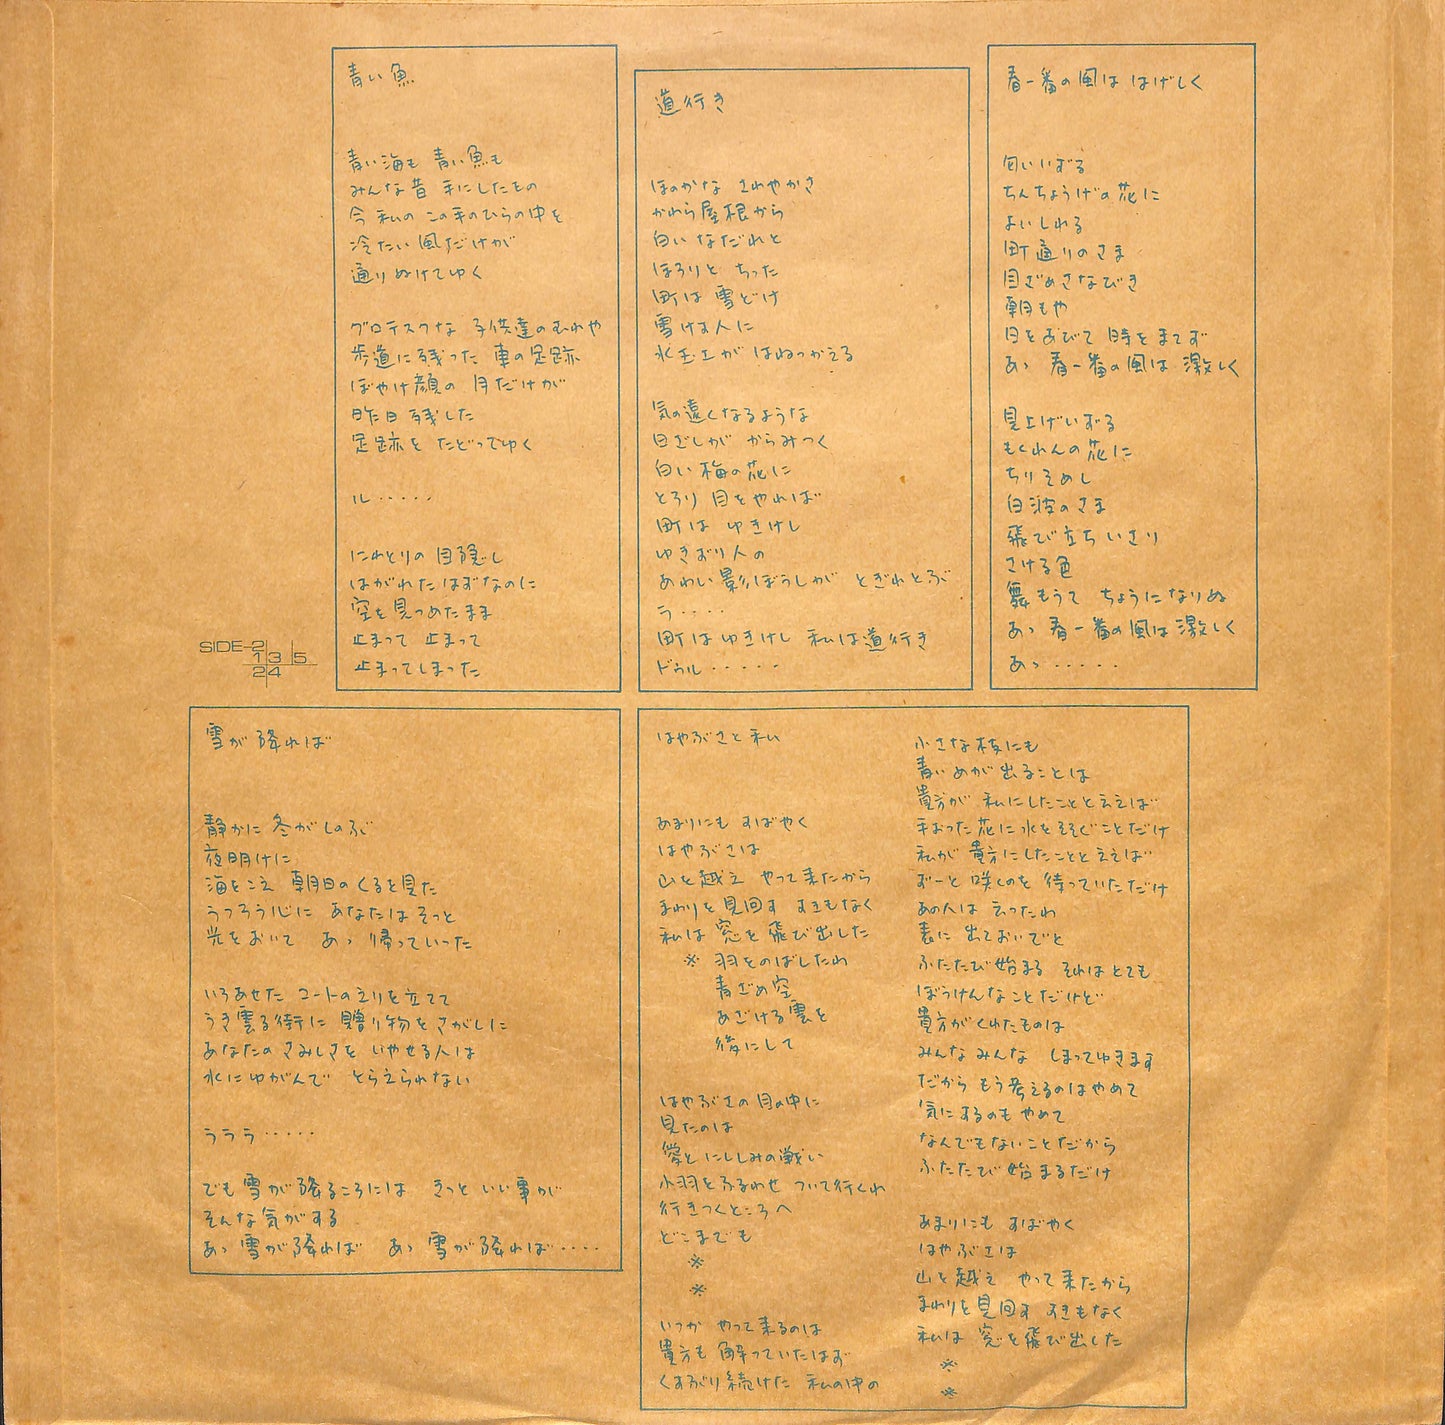 青い魚
青い海も 青い魚も
みんな昔 手にしたもの
今 私の この手のひらの中を
冷たい 風だけが
通りぬけてゆく
グロテスクな 子供達のむれや
歩道に残った 車の足跡
ぼやけ顔の 月だけが
昨日残した
足跡を たどってゆく
ル・・・・・
にわとりの目隠し
はがれたはずなのに
空を見つめたまま
止まって 止まって
止まってしまった
道行き
ほのかな さわやかさ
かわら屋根から
白い なだれと
ほろりと ちった
町は 雪どけ
雪けは人に
水玉工が はねっかえる
気の遠くなるような
日ざしが からみつく
白い梅の花に
とろり 目をやれば
町は ゆきけし
ゆきおり人の
あわい影ぼうしが とぎれとぶ
ラ・・・・
町はゆきけし 私は道行き
ドゥル・・・・・
春一番の風は はげしく
匂いいずる
ちんちょうげの花に
よいしれる
町通りのさま
目ざめさなびき
朝もや
日をあびて 時をまてず
あゝ 春一番の風は 激しく
見上げいずる
もくれんの花に
ちりそめし
白波のさま
飛び立ち いさり
さける色
舞もうて ちょうになりぬ
あゝ 春一番の風は激しく
あゝ・・・・・
SIDE-2
1 3 5
2 4
雪が降れば
静かに 冬がしのぶ
夜明けに
海をこえ 朝日のくるを見た
うつろう心に あなたはそっと
光をおいて あゝ 帰っていった
いろあせた コートのえりを立てて
うき雲る街に 贈り物をさがしに
あなたのさみしさを いやせる人は
水にゆがんで とらえられない
ララララ・・・・・
でも 雪が降るころには きっと いい事が
そんな気がする
あゝ 雪が降れば あゝ 雪が降れば・・・・
はやぶさと私
あまりにも すばやく
はやぶさは
山を越え やって来たから
まわりを見回す すきもなく
私は 窓を飛び出した
※ 羽をのばしたわ
青ざめ空
あざける雲を
後にして
はやぶさの目の中に
見たのは
愛とにくしみの戦い
小羽をふるわせ ついて行くわ
行きつくところへ
どこまでも
※
※
いつか やって来るのは
貴方も 解っていたはず
くすぶり続けた 私の中の
小さな枝にも
青いめが出ることは
貴方が 私にしたことと云えば
手おった花に水をそそぐことだけ
私が 貴方にしたことと云えば
ずーと 咲くのを 待っていただけ
あの人は 云ったわ
表に 出ておいでと
ふたたび始まる それはとても
ぼうけんなことだけど
貴方がくれたものは
みんなみんな しまってゆきます
だから もう考えるのはやめて
気にするのも やめて
なんでもないことだから
ふたたび 始まるだけ
あまりにも すばやく
はやぶさは
山を越え やって来たから
まわりを見回す すきもなく
私は 窓を飛び出した
※
※